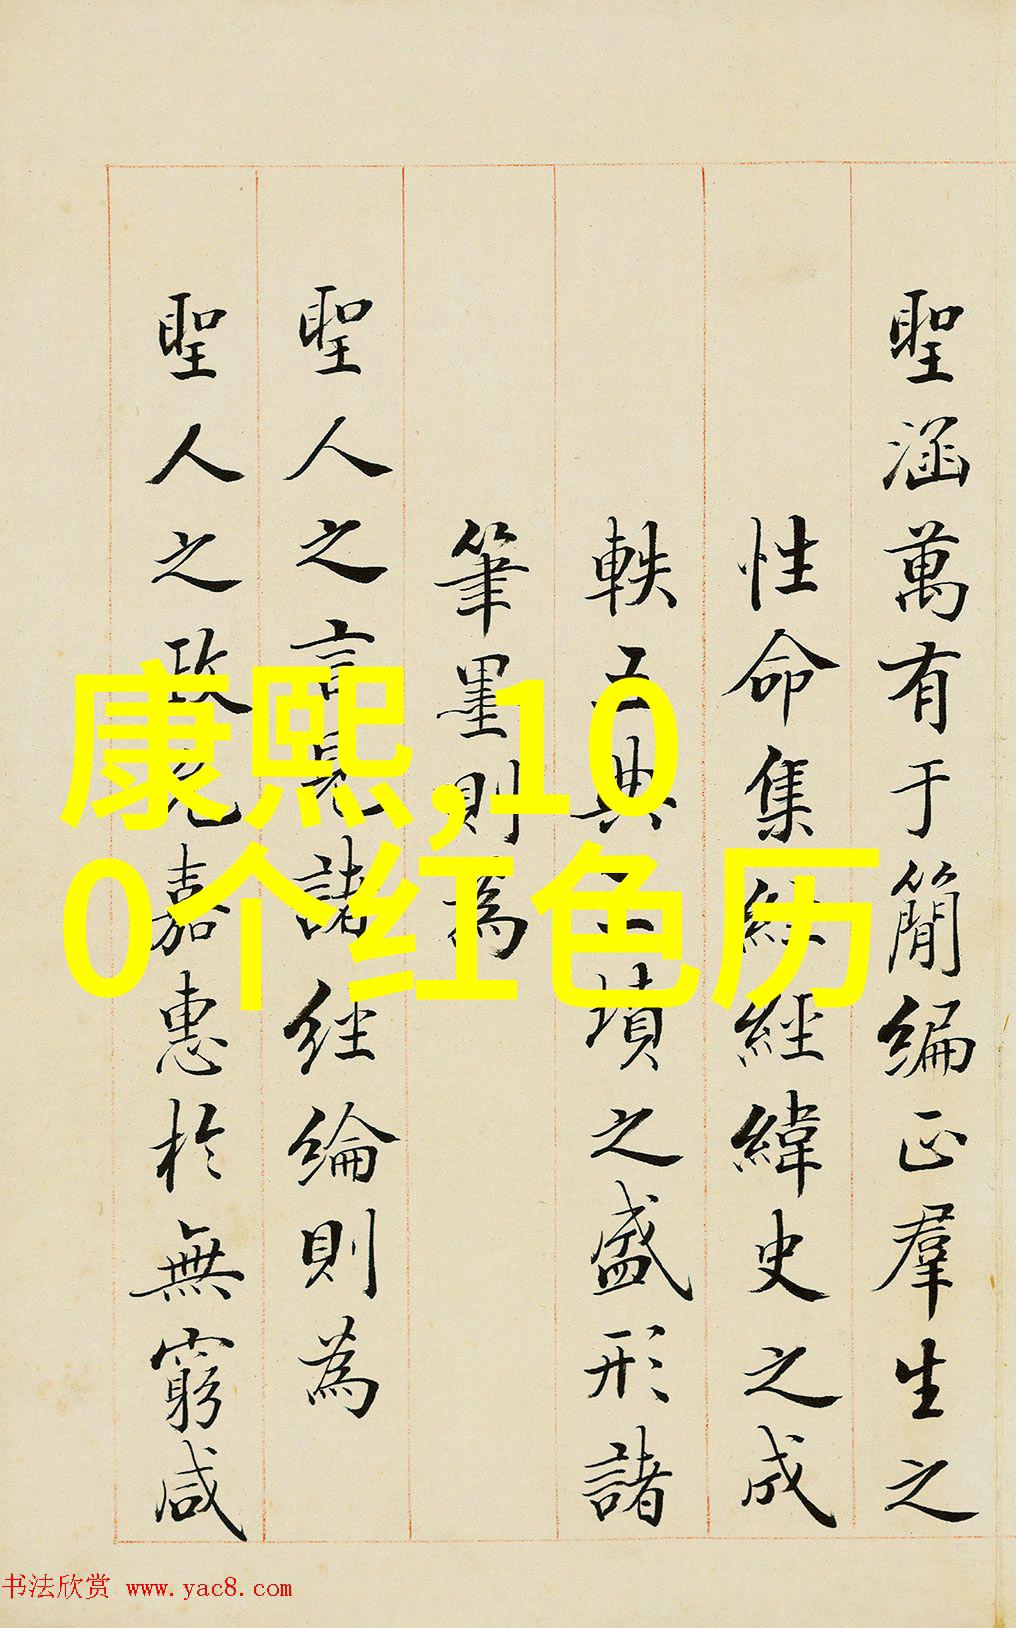 聖涵萬有于簡編正羣生之
性命集經緯史之成
軼五典墳之盛形諸
筆墨則為
聖人之言見諸經綸則為
聖人之政嘉惠於無窮咸
康熙,10
0个红色历
书法欣赏 www.yac8.com